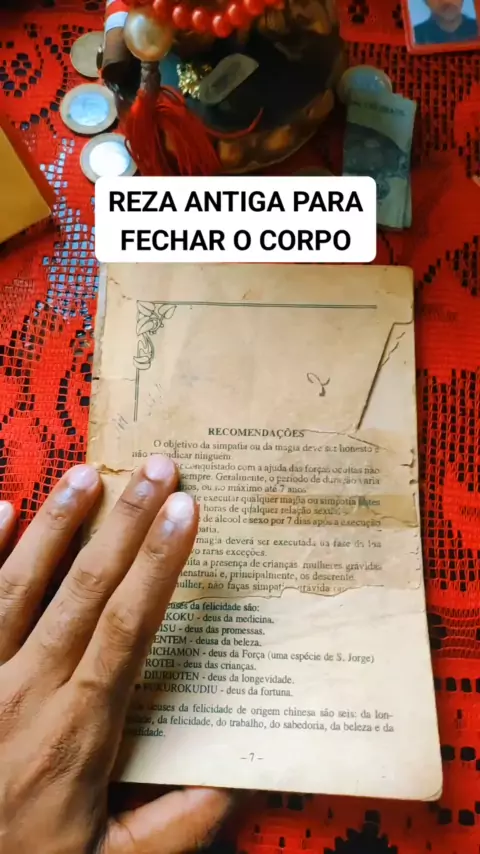 REZA ANTIGA PARA
FECHAR O CORPO
RECOMENDAÇÕES
O objetivo da simpatia ou da magia deve ser honesto e
não prejudicar ninguém
conquistado com a ajuda das forças ocultas não
sempre. Geralmente, o período de duração varia
nos, ou no máximo até 7 anos.
executar qualquer magia ou simpatia
horas de qualquer relação
de alcool e sexo por 7 dias após a execução
patia.
magia deverá ser executada na fase da lua
vo raras exceções.
a presença de crianças mulheres grávidas
menstrual e, principalmente, os descrente.
ulher, não faças simpatia grávida
euses da felicidade são:
KOKU - deus da medicina.
ISU - deus das promessas.
ENTEM - deusa da beleza.
BICHAMON - deus da Força (uma espécie de S. Jorge)
ROTEI - deus das crianças.
DIURIOTEN - deus da longevidade.
FUKUROKUDIU - deus da fortuna.
deuses da felicidade de origem chinesa são seis: da lon-
dade, da felicidade, do trabalho, do sabedoria, da beleza e da
lidade.
– 7 –